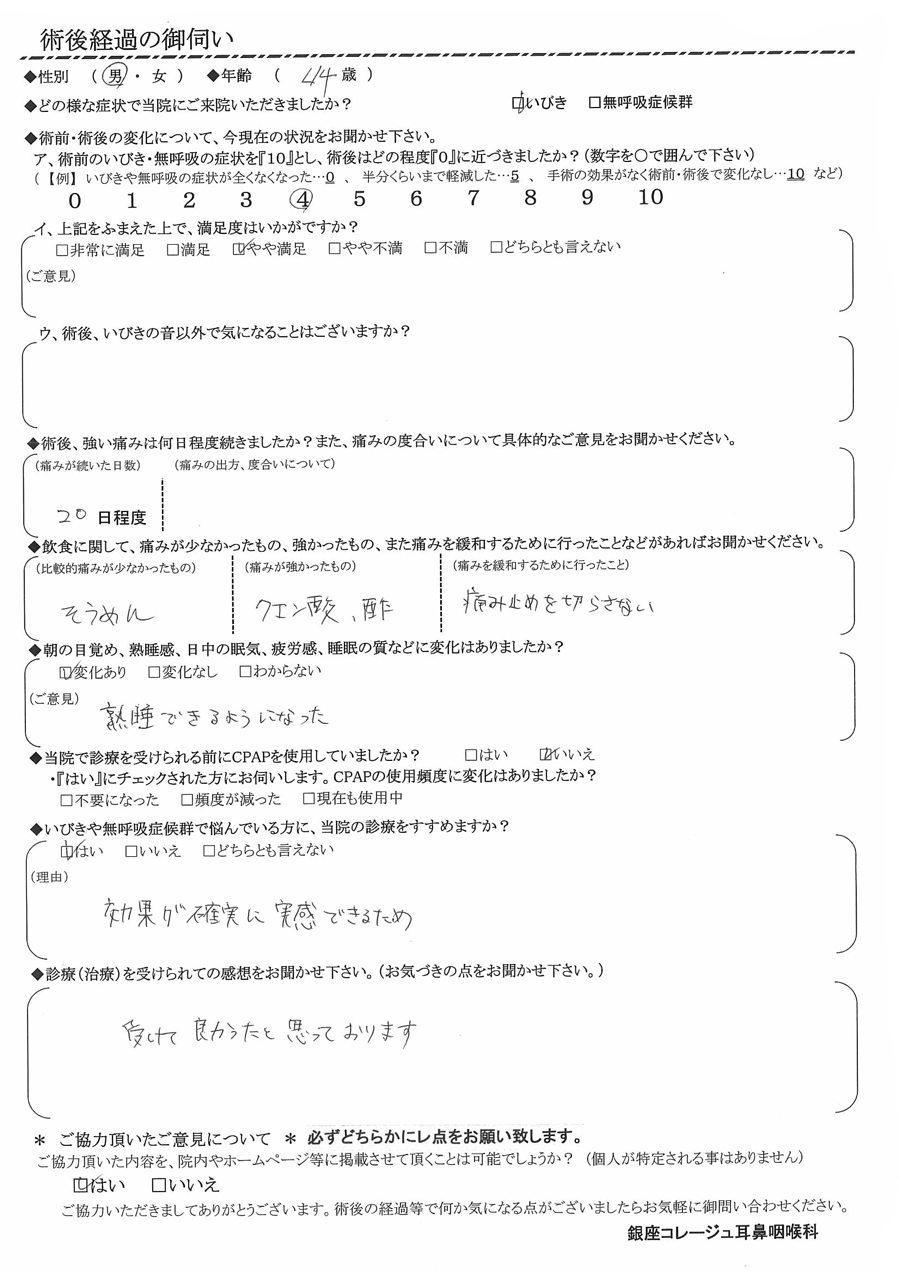 術後経過の御伺い
◆性別 （ 男 ・ 女 ） ◆年齢 （ 44 歳 ）
◆どの様な症状で当院にご来院いただきましたか？ ☑いびき □無呼吸症候群
◆術前・術後の変化について、今現在の状況をお聞かせ下さい。
ア、術前のいびき・無呼吸の症状を『10』とし、術後はどの程度『0』に近づきましたか？（数字を○で囲んで下さい）
（ 【例】 いびきや無呼吸の症状が全くなくなった…0 、 半分くらいまで軽減した…5 、 手術の効果がなく術前・術後で変化なし…10 など）
0 1 2 3 4 5 6 7 8 9 10
イ、上記をふまえた上で、満足度はいかがですか？
□非常に満足 □満足 ☑やや満足 □やや不満 □不満 □どちらとも言えない
（ご意見）
ウ、術後、いびきの音以外で気になることはございますか？
◆術後、強い痛みは何日程度続きましたか？また、痛みの度合いについて具体的なご意見をお聞かせください。
（痛みが続いた日数） （痛みの出方、度合いについて）
20 日程度
◆飲食に関して、痛みが少なかったもの、強かったもの、また痛みを緩和するために行ったことなどがあればお聞かせください。
（比較的痛みが少なかったもの） （痛みが強かったもの） （痛みを緩和するために行ったこと）
そうめん クエン酸、酢 痛み止めを切らさない
◆朝の目覚め、熟睡感、日中の眠気、疲労感、睡眠の質などに変化はありましたか？
☑変化あり □変化なし □わからない
（ご意見）
熟睡できるようになった
◆当院で診療を受けられる前にCPAPを使用していましたか？ □はい ☑いいえ
・『はい』にチェックされた方にお伺いします。CPAPの使用頻度に変化はありましたか？
□不要になった □頻度が減った □現在も使用中
◆いびきや無呼吸症候群で悩んでいる方に、当院の診療をすすめますか？
☑はい □いいえ □どちらとも言えない
（理由）
効果が確実に実感できるため
◆診療（治療）を受けられての感想をお聞かせ下さい。（お気づきの点をお聞かせ下さい。）
受けて良かったと思っております
＊ ご協力頂いたご意見について ＊ 必ずどちらかにレ点をお願い致します。
ご協力頂いた内容を、院内やホームページ等に掲載させて頂くことは可能でしょうか？ （個人が特定される事はありません）
☑はい □いいえ
ご協力いただきましてありがとうございます。術後の経過等で何か気になる点がございましたらお気軽に御問い合わせください。
銀座コレージュ耳鼻咽喉科